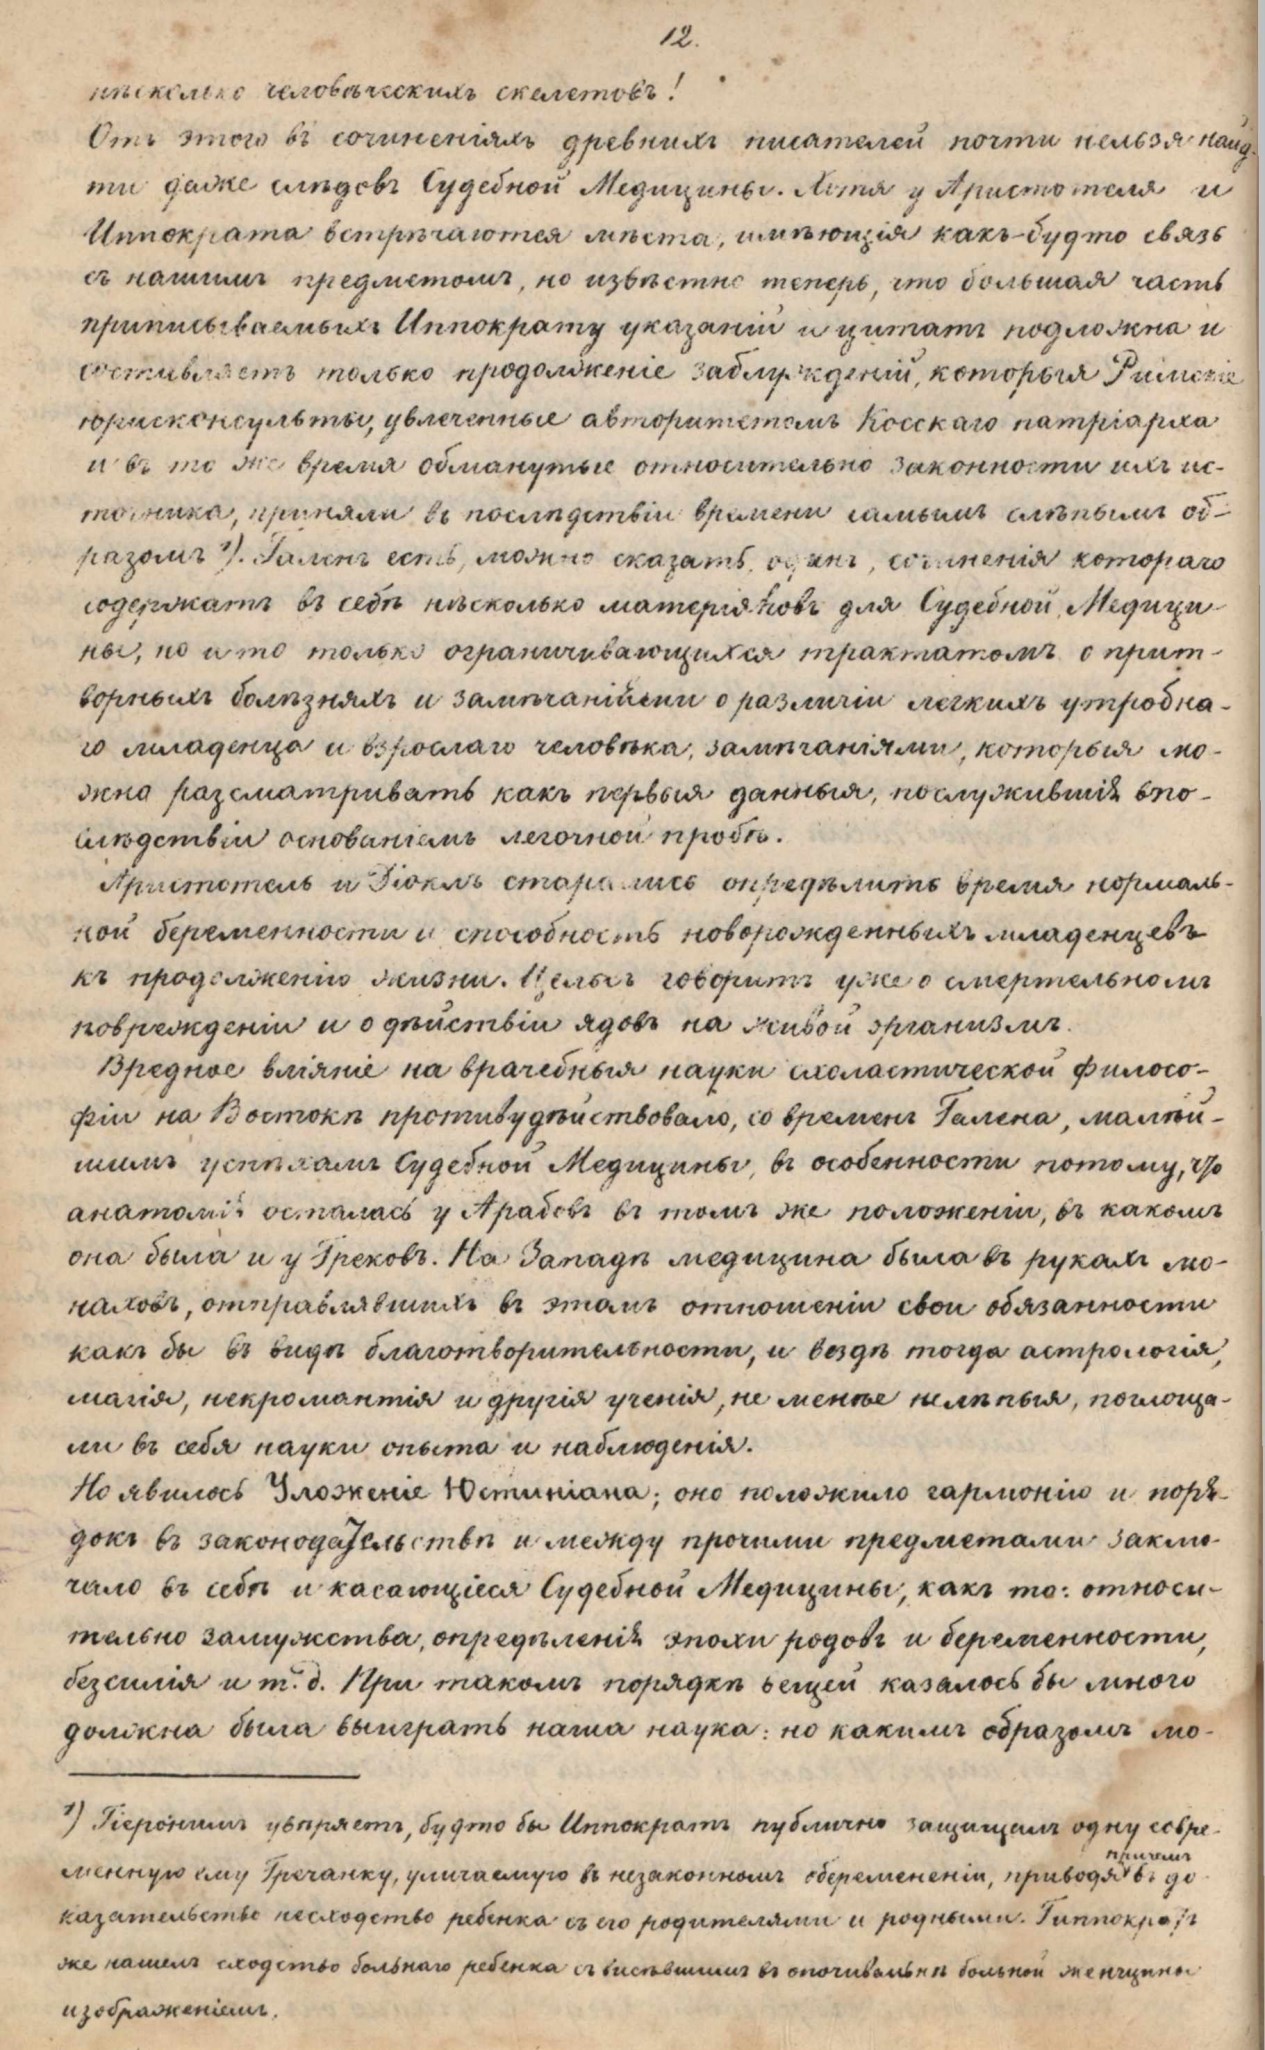 12.
нѣсколько человѣческихъ скелетовъ!
Отъ этого въ сочиненіяхъ древнихъ писателей почти нельзя найд-
ти даже слѣдовъ Судебной Медицины. Хотя у Аристотеля и
Иппократа встрѣчаются мѣста, имѣющія какъ-будто связь
съ нашимъ предметомъ, но извѣстно теперь, что большая часть
приписываемыхъ Иппократу указаній и цитатъ подложна и
составляетъ только продолженіе заблужденій, которыя Римскіе
юрисконсульты, увлеченные авторитетомъ Косскаго патріарха
и въ то же время обманутые относительно законности ихъ ис-
точника, приняли въ послѣдствіи времени самымъ слѣпымъ об-
разомъ ¹). Галенъ есть, можно сказать, одинъ, сочиненія котораго
содержатъ въ себѣ нѣсколько матеріяловъ для Судебной Медици-
ны, но и то только ограничивающихся трактатомъ о прит-
ворныхъ болѣзняхъ и замѣчаніями о различіи легкихъ утробна-
го младенца и взрослаго человѣка, замѣчаніями, которыя мо-
жно разсматривать какъ первыя данныя, послужившія впо-
слѣдствіи основаніемъ легочной пробѣ.
Аристотель и Діоклъ старались опредѣлить время нормаль-
ной беременности и способность новорожденныхъ младенцевъ
къ продолженію жизни. Цельсъ говоритъ уже о смертельномъ
поврежденіи и о дѣйствіи ядовъ на живой организмъ.
Вредное вліяніе на врачебныя науки схоластической филосо-
фіи на Востокѣ противудѣйствовало, со временъ Галена, малѣй-
шимъ успѣхамъ Судебной Медицины, въ особенности потому, что
анатомія осталась у Арабовъ въ томъ же положеніи, въ какомъ
она была и у Грековъ. На Западѣ медицина была въ рукахъ мо-
наховъ, отправлявшихъ въ этомъ отношеніи свои обязанности
какъ бы въ видѣ благотворительности, и вездѣ тогда астрологія,
магія, некромантія и другія ученія, не менѣе нелѣпыя, поглоща-
ли въ себя науки опыта и наблюденія.
Но явилось Уложеніе Юстиніана; оно положило гармонію и поря-
докъ въ законодательствѣ и между прочими предметами заклю-
чало въ себѣ и касающіеся Судебной Медицины, какъ то: относи-
тельно замужства, опредѣленія эпохи родовъ и беременности,
безсилія и т. д. При такомъ порядкѣ вещей казалось бы много
должна была выиграть наша наука: но какимъ образомъ мо-
¹) Гіеронимъ увѣряетъ, будто бы Иппократъ публично защищалъ одну совре-
менную ему Гречанку, уличаемую въ незаконномъ оберемененіи, приводя причемъ въ до-
казательство несходство ребенка съ его родителями и родными. Гиппократъ
же нашелъ сходство больнаго ребенка съ висѣвшимъ въ опочивальнѣ больной женщины
изображеніемъ.